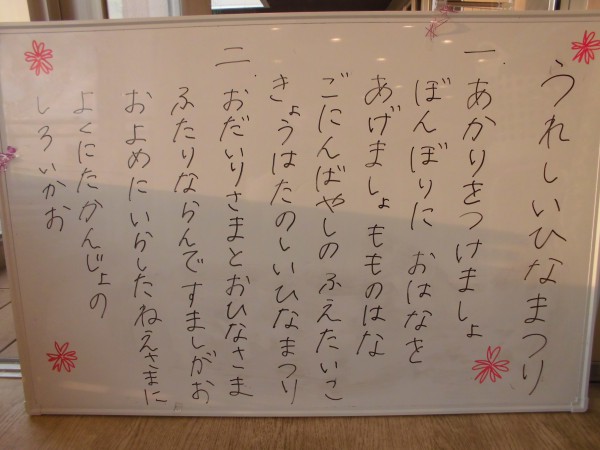 うれしいひなまつり
一、あかりをつけましょ
ぼんぼりに おはなを
あげましょ もものはな
ごにんばやしの ふえたいこ
きょうはたのしいひなまつり
二、おだいりさまとおひなさま
ふたりならんですましがお
およめにいらしたねえさまに
よくにたかんじょの
しろいかお